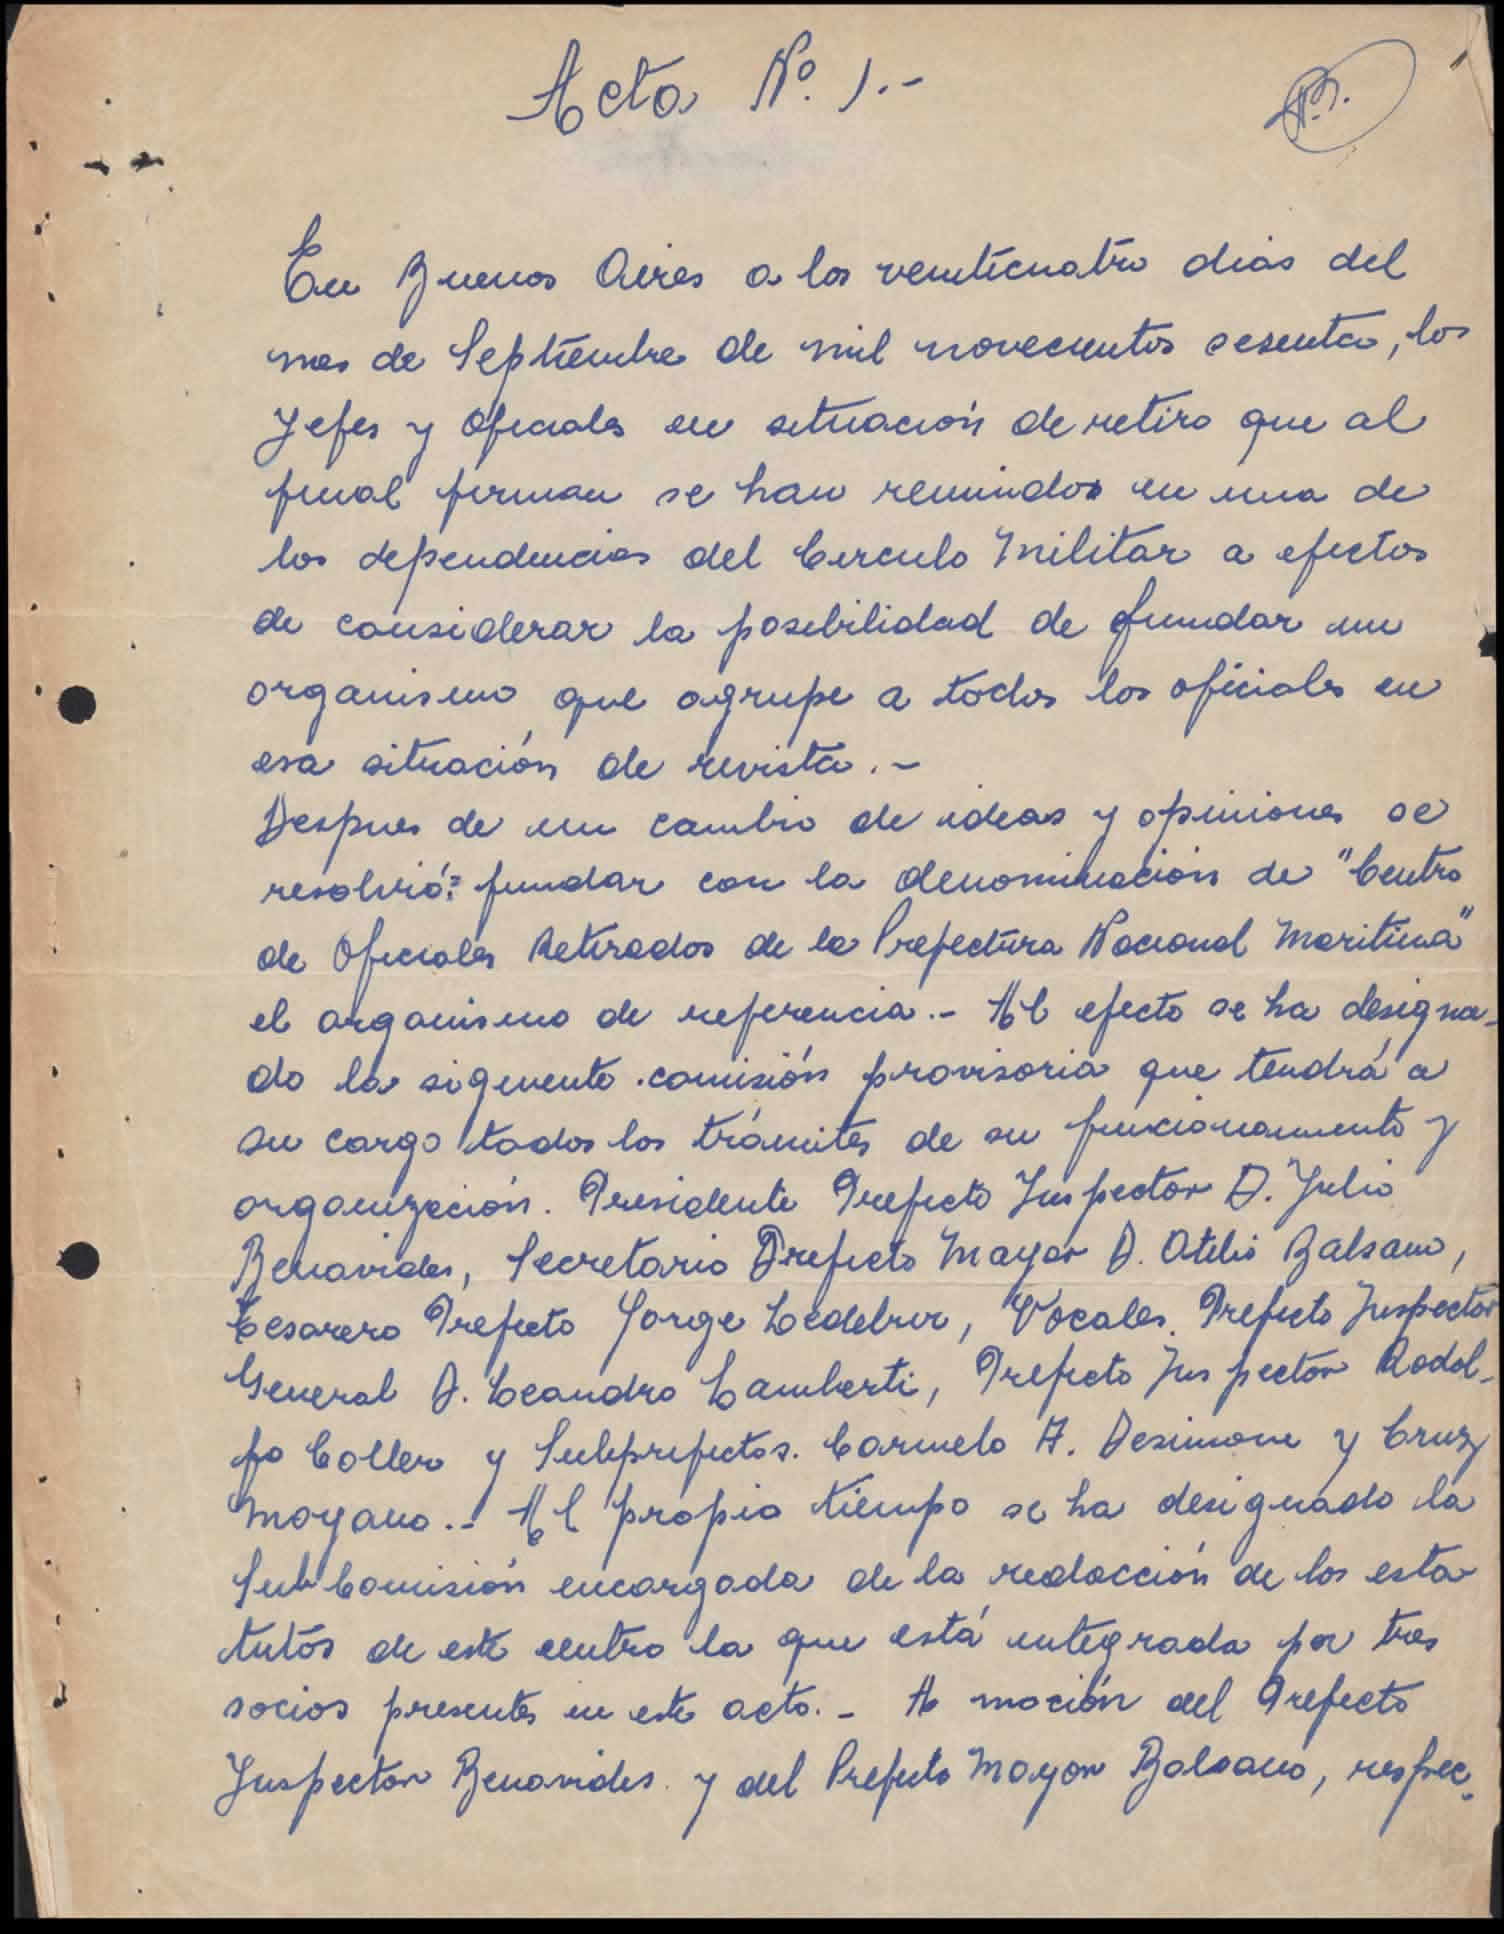 Acta Nº. 1.-
En Buenos Aires a los venticuatro dias del
mes de Septiembre de mil novecientos sesenta, los
Jefes y Oficiales en situación de retiro que al
final firman se han reunidos en una de
las dependencias del Circulo Militar a efectos
de considerar la posibilidad de fundar un
organismo que agrupe a todos los oficiales en
esa situación de revista.-
Despues de un cambio de ideas y opiniones se
resolvió: fundar con la denominación de "Centro
de Oficiales Retirados de la Prefectura Nacional Maritima"
el organismo de referencia.- Al efecto se ha designa-
do la siguiente comisión provisoria que tendrá a
su cargo todos los trámites de su funcionamiento y
organización. Presidente Prefecto Inspector D. Julio
Benavides, Secretario Prefecto Mayor D. Atilio Balsano,
Tesorero Prefecto Jorge Ledebur, Vocales. Prefecto Inspector
General D. Leandro Lamberti, Prefecto Inspector Rodol-
fo Coller y Subprefectos. Carmelo A. Desimone y Cruz
Moyano.- Al propio tiempo se ha designado la
Sub Comisión encargada de la redacción de los esta
tutos de este centro la que está integrada por tres
socios presentes en este acto.- A moción del Prefecto
Inspector Benavides y del Prefecto Mayor Balsano, respec-